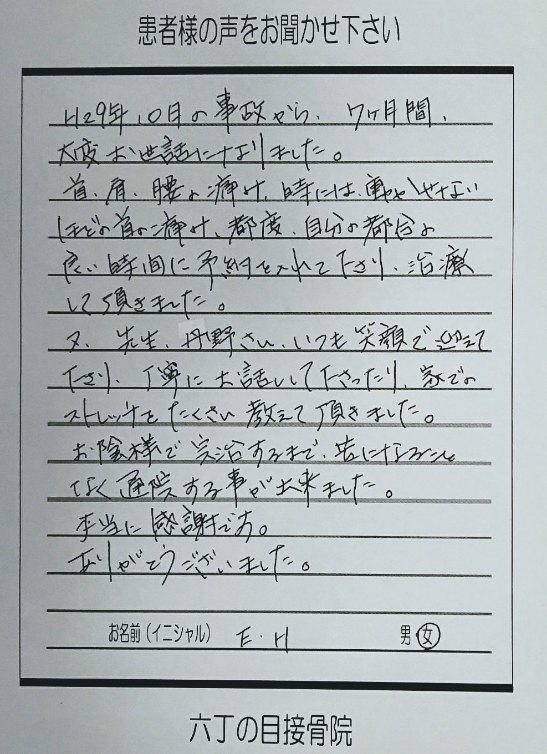 患者様の声をお聞かせ下さい
H29年10月の事故から、7ヶ月間、
大変お世話になりました。
首、肩、腰の痛み、時には、動かせない
ほどの首の痛み、都度、自分の都合の
良い時間に予約を入れて下さり、治療
して頂きました。
又、先生、丹野さん、いつも笑顔で迎えて
下さり、丁寧にお話しして下さったり、家での
ストレッチをたくさん教えて頂きました。
お陰様で完治するまで、苦になること
なく通院する事が出来ました。
本当に感謝です。
ありがとうございました。
お名前(イニシャル) E・H 男 女
六丁の目接骨院